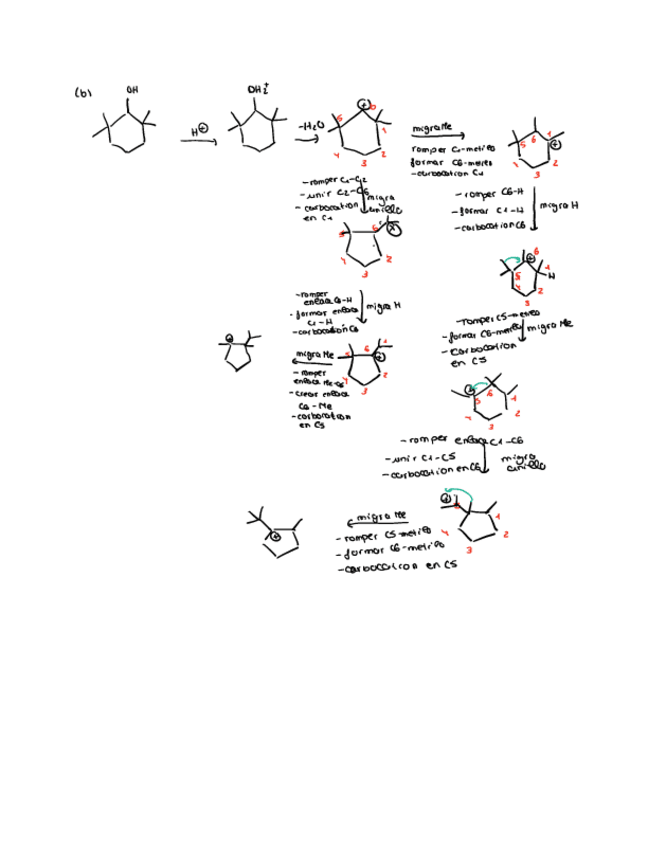 (b)
OH
OH₂⁺
H⊕
-H₂O
⊕ 6
5
1
4
2
3
migra Me
romper C1-metilo
formar C6-metilo
-carbocation C1
1
6
5
⊕
2
3
-romper C1-C2
-unir C2-C6
-carbocation
en C1
migra
anillo
-romper C6-H
-formar C1-H
-carbocation C6
migra H
6
4
2
3
⊕ 6
1
H
5
2
3
-romper
enlace C6-H
-formar enlace
C1-H
-carbocation C6
migra H
-romper C5-metilo
-formar C6-metilo
-carbocation
en C5
migra Me
⊕
migra Me
-romper
enlace Me-C6
-crear enlace
C6-Me
-carbocation
en C5
5
6
1
⊕
2
3
6
5
1
2
3
-romper enlace C1-C6
-unir C1-C5
-carbocation en C6
migra
anillo
⊕
1
4
2
3
⊕
migra Me
-romper C5-metilo
-formar C6-metilo
-carbocation en C5